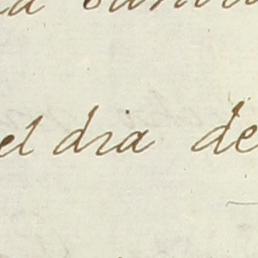 el dia de